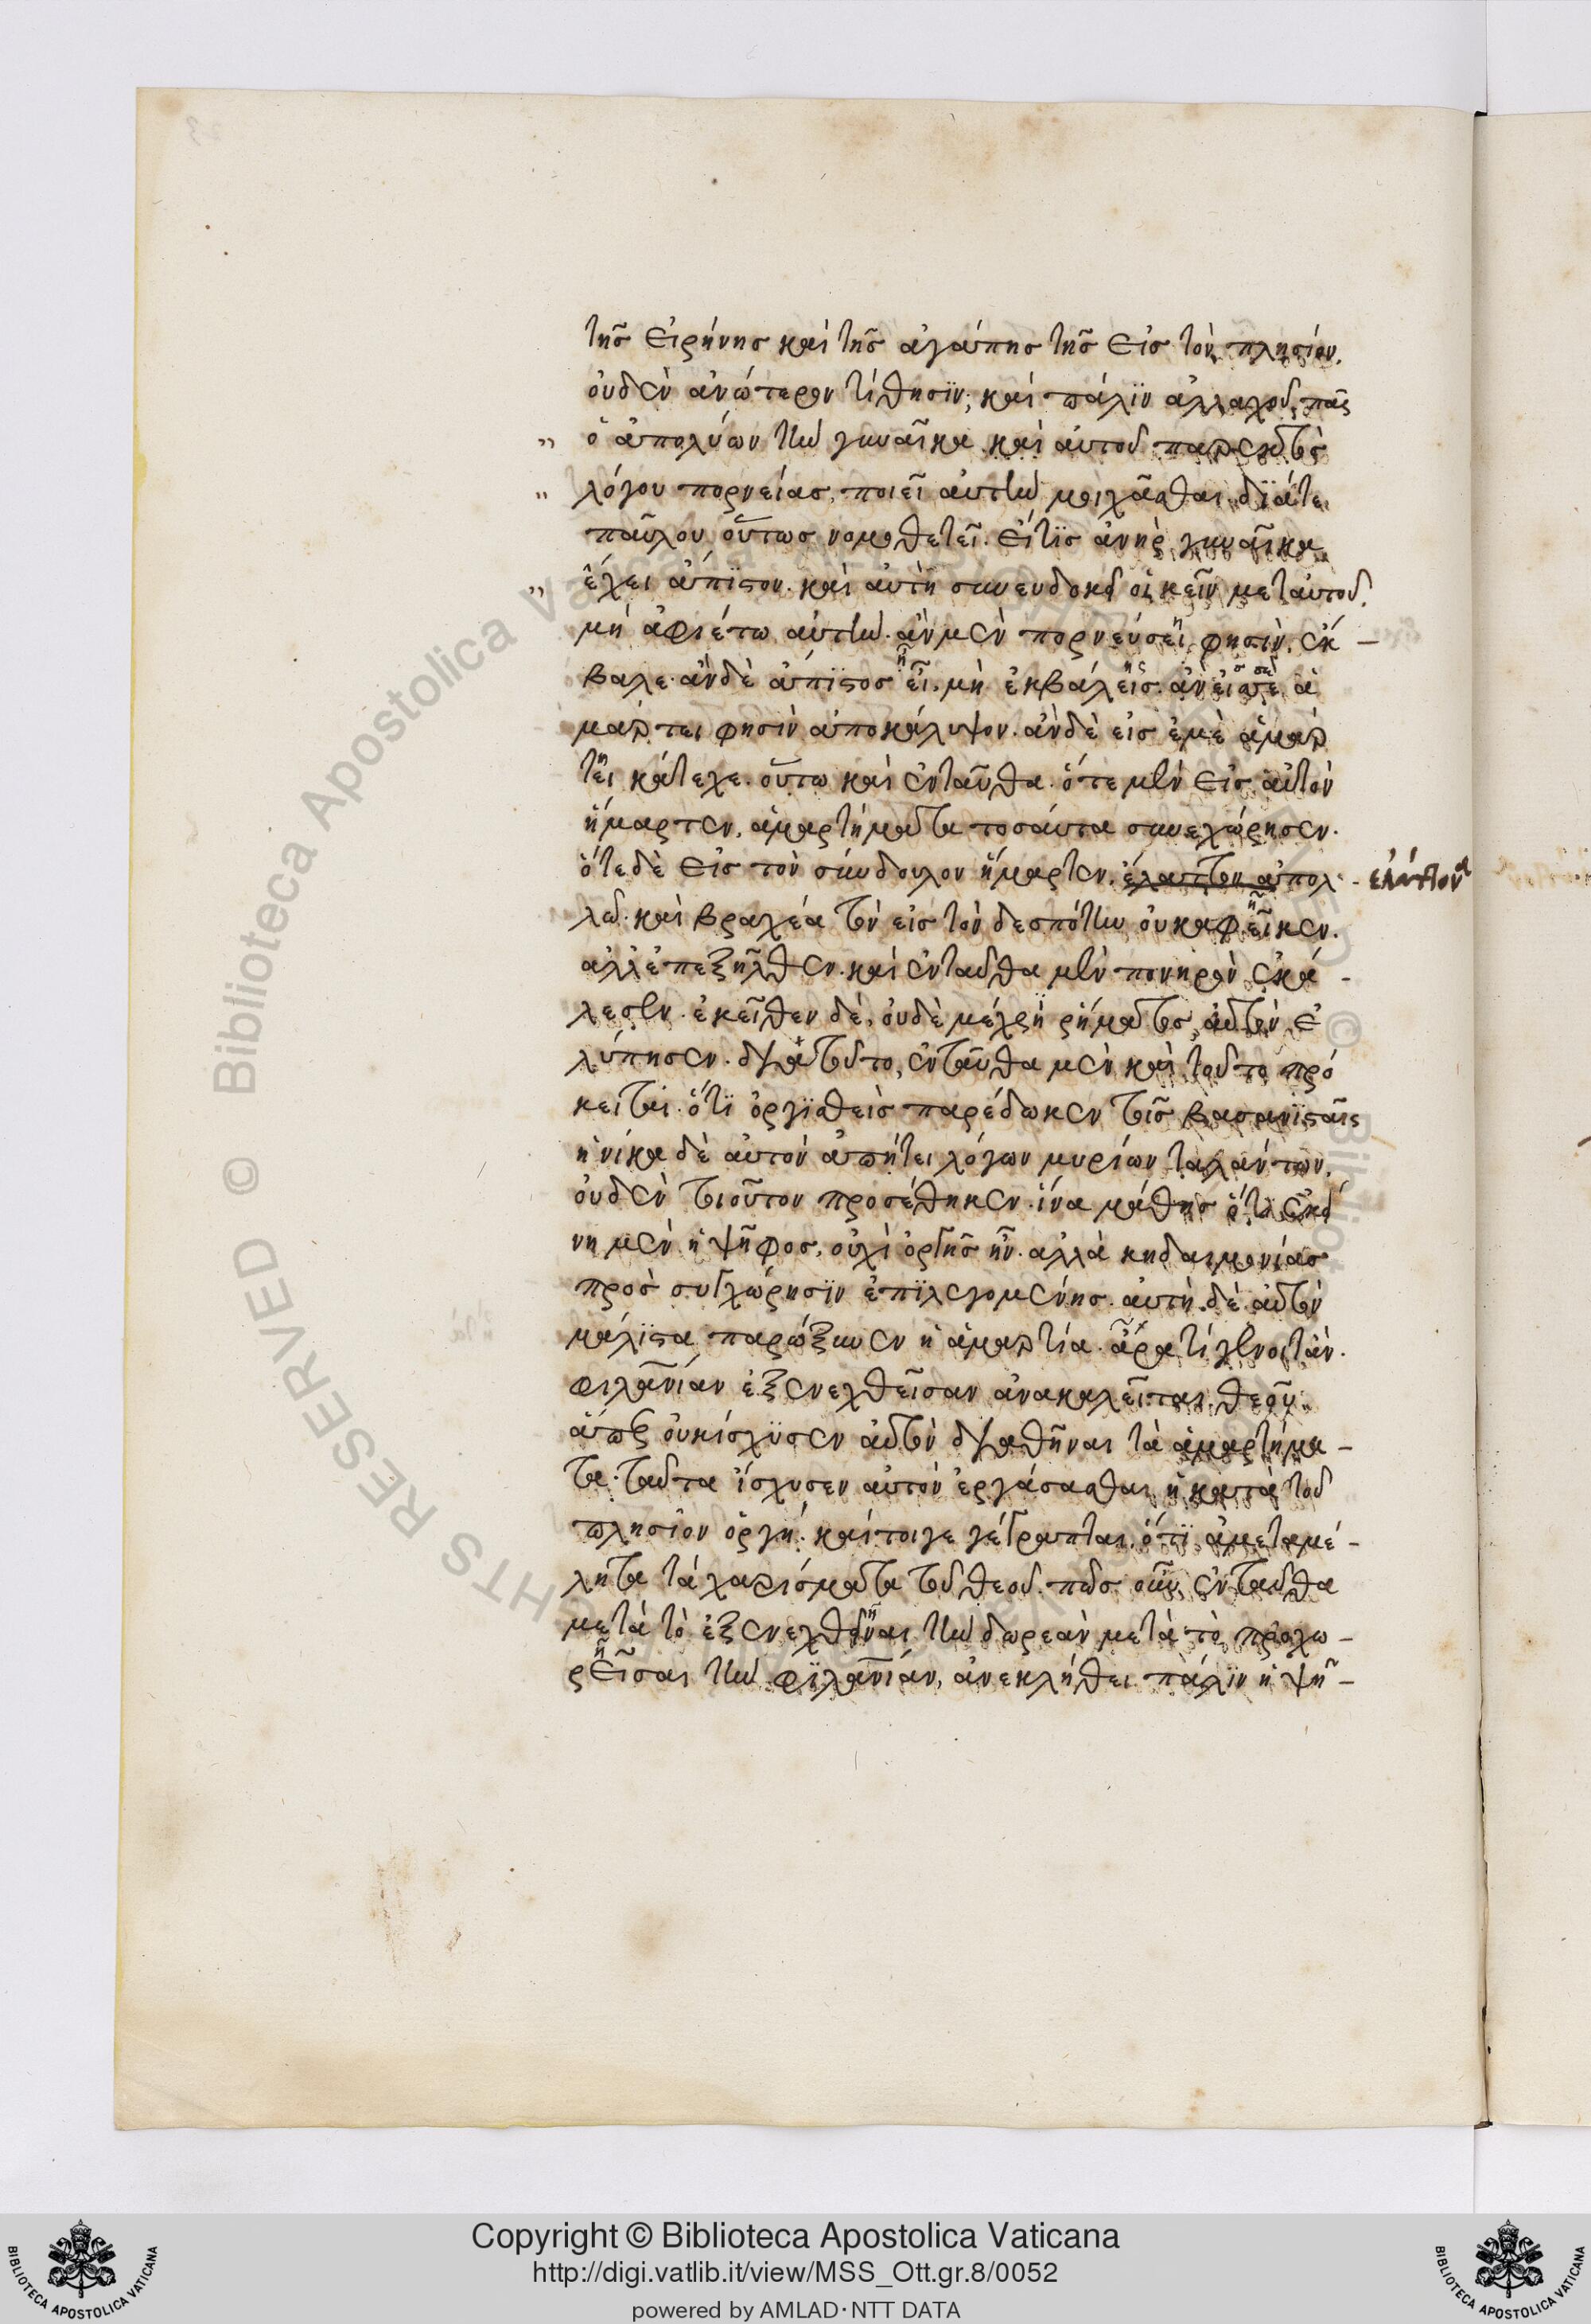 τῆς εἰρήνης καὶ τῆς ἀγάπης τῆς εἰς τὸν πλησίον.
οὐδὲν ἀνώτερον τίθησϊν; καὶ πάλϊν ἀλλαχοῦ, πᾶς
" ὁ ἀπολύων τὴν γυναῖκα καὶ αὐτοῦ παρεκτὸς
" λόγου πορνείας, ποιεῖ αὐτὴν μοιχᾶσθαι. δϊάτε
παῦλον οὕτως νομοθετεῖ. εἴτϊς ἀνὴρ γυναῖκα
" ἔχει ἄπϊστον. καὶ αὐτὴ συνευδοκεῖ οἰκεῖν μεταὐτοῦ.
μὴ ἀφιέτω αὐτὴν. ἂν μὲν πορνεύσεῃι φησὶν. ἔκ –
βαλε. ἂν δὲ ἄπϊστος ᾖεἶ. μὴ ἐκβάλῃςεις. ἂν εἰς σὲ ἁ
μαρτει φησὶν ἀποκάλυψον. ἂν δὲ εἰς ἐμὲ ἁμαρ
τῃει κάτεχε. οὕτω καὶ ἐνταῦθα. ὅτε μὲν εἰς αὐτὸν
ἥμαρτεν, ἁμαρτήματα τοσαύτα συνεχώρησεν.
ὅτε δὲ εἰς τὸν σύνδουλον ἥμαρτεν, ἐλαττον ἀπολ – ἐλάττονα
λῶ. καὶ βραχέα τὸν εἰς τὸν δεσπότην οὐκ ἀφῆεῖκεν.
ἀλλἐπεξῆλθεν. καὶ ἐνταῦθα μὲν πονηρὸν ἐκά –
λεσεν. ἐκεῖθεν δὲ, οὐδὲ μέχρϊ ῥήματος αὐτὸν ἐ
λύπησεν. διὰ τοῦτο, ἐνταῦθα μὲν καὶ τοῦτο πρό
κειται. ὅτϊ ὀργϊσθεὶς παρέδωκεν τοῖς βασανϊσταῖς
ἡνίκα δὲ αὐτὸν ἀπῄτει λόγων μυρίων ταλάντων,
οὐδὲν τοιοῦτον προσέθηκεν. ἵνα μάθῃς ὅτι ἐκεί
νη μὲν ἡ ψῆφος, οὐχὶ ὀργῆς ἦν. ἀλλὰ κηδαιμονίας
πρὸς συγχώρησϊν ἐπϊλεγομένης. αὐτὴ δὲ αὐτὸν
μάλϊστα παρώξυνεν ἡ ἁμαρτία. ἆρα τί γένοιτἂν.
φιλανίαν ἐξενεχθεῖσαν ἀνακαλεῖται θεοῦ.
ἅπερ οὐκίσχϋσεν αὐτὸν διαθῆναι τὰ ἁμαρτήμα –
τα. ταῦτα ἴσχυσεν αὐτὸν ἐργάσασθαι ἡ κατὰ τοῦ
πλησίον ὀργή. καίτοιγε γέγραπται. ὅτϊ ἀμεταμέ –
λητα τὰ χαρίσματα τοῦ θεοῦ. πῶς οὖν ἐνταῦθα
μετὰ τὸ ἐξενεχθῆναι τὴν δωρεὰν μετὰ τὸ προχω –
ρῆεῖσαι τὴν φϊλανίαν, ἀνεκλήθει πάλϊν ἡ ψῆ –
Copyright © Biblioteca Apostolica Vaticana
http://digi.vatlib.it/view/MSS_Ott.gr.8/0052
powered by AMLAD·NTT DATA